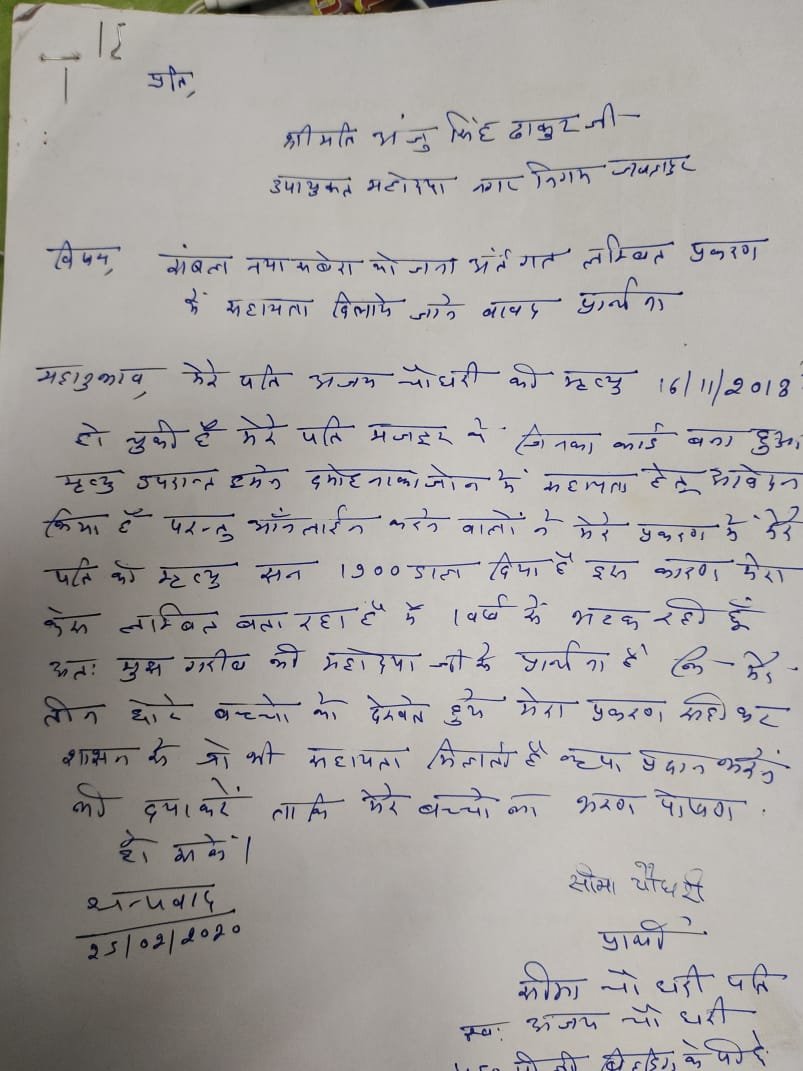 15
1
प्रति,
श्रीमति अंजु सिंह ठाकुर जी
उपायुक्त महोदया नगर निगम जबलपुर
विषय, संबल नया सबेरा योजना अंर्तगत लम्बित प्रकरण
में सहायता दिलाये जाने बावद प्रार्थना
महानुभाव, मेरे पति अजय चौधरी की मृत्यु 16/11/2018
हो चुकी है मेरे पति मजदूर थे जिनका कार्ड बना हुआ
मृत्यु उपरान्त हमने दमोहनाका जोन में सहायता हेतू आवेदन
किया है परन्तु ऑनलाईन करने वालों ने मेरे प्रकरण में मेरे
पति की मृत्यु सन 1900 डाल दिया है इस कारण मेरा
केस लाम्बित बता रहा है मैं 1 वर्ष से भटक रही हूँ
अतः मुझ गरीब की महोदया जी से प्रार्थना है कि मेरे
तीन छोटे बच्चो को देखते हुये मेरा प्रकरण सही कर
शासन से जो भी सहायता मिलती है कृपा प्रदान करने
की दया करें ताकि मेरे बच्चो का भरण पोषण
हो सके।
धन्यवाद
25/02/2020
सीमा चौधरी
प्रार्थी
सीमा चौधरी पति
स्व: अजय चौधरी
बिल्डिंग के पीछे